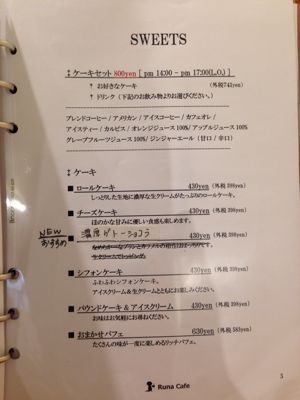 SWEETS
ケーキセット 800yen [ pm 14:00 – pm 17:00(L.O.) ]
↑ お好きなケーキ (外税741yen)
↑ ドリンク (下記のお飲み物よりお選びください。)
ブレンドコーヒー / アメリカン / アイスコーヒー / カフェオレ /
アイスティー / カルピス / オレンジジュース 100% / アップルジュース 100%
グレープフルーツジュース 100% / ジンジャーエール (甘口 / 辛口)
ケーキ
■ ロールケーキ 430yen (外税 398yen)
しっとりした生地に濃厚な生クリームがたっぷりのロールケーキ。
■ チーズケーキ 430yen (外税 398yen)
ほのかな甘みに優しい食感も楽しめます。
NEW
おすすめ
■ 濃厚ガトーショコラ 430yen (外税 398yen)
■ シフォンケーキ 430yen (外税 398yen)
ふわふわシフォンケーキ。
アイスクリーム&生クリームとともにお楽しみください。
■ パウンドケーキ & アイスクリーム 430yen (外税 398yen)
お味はお気軽にお尋ねください。
■ おまかせパフェ 630yen (外税 583yen)
たくさんの味が一度に楽しめるリッチパフェ。
Runa Cafe